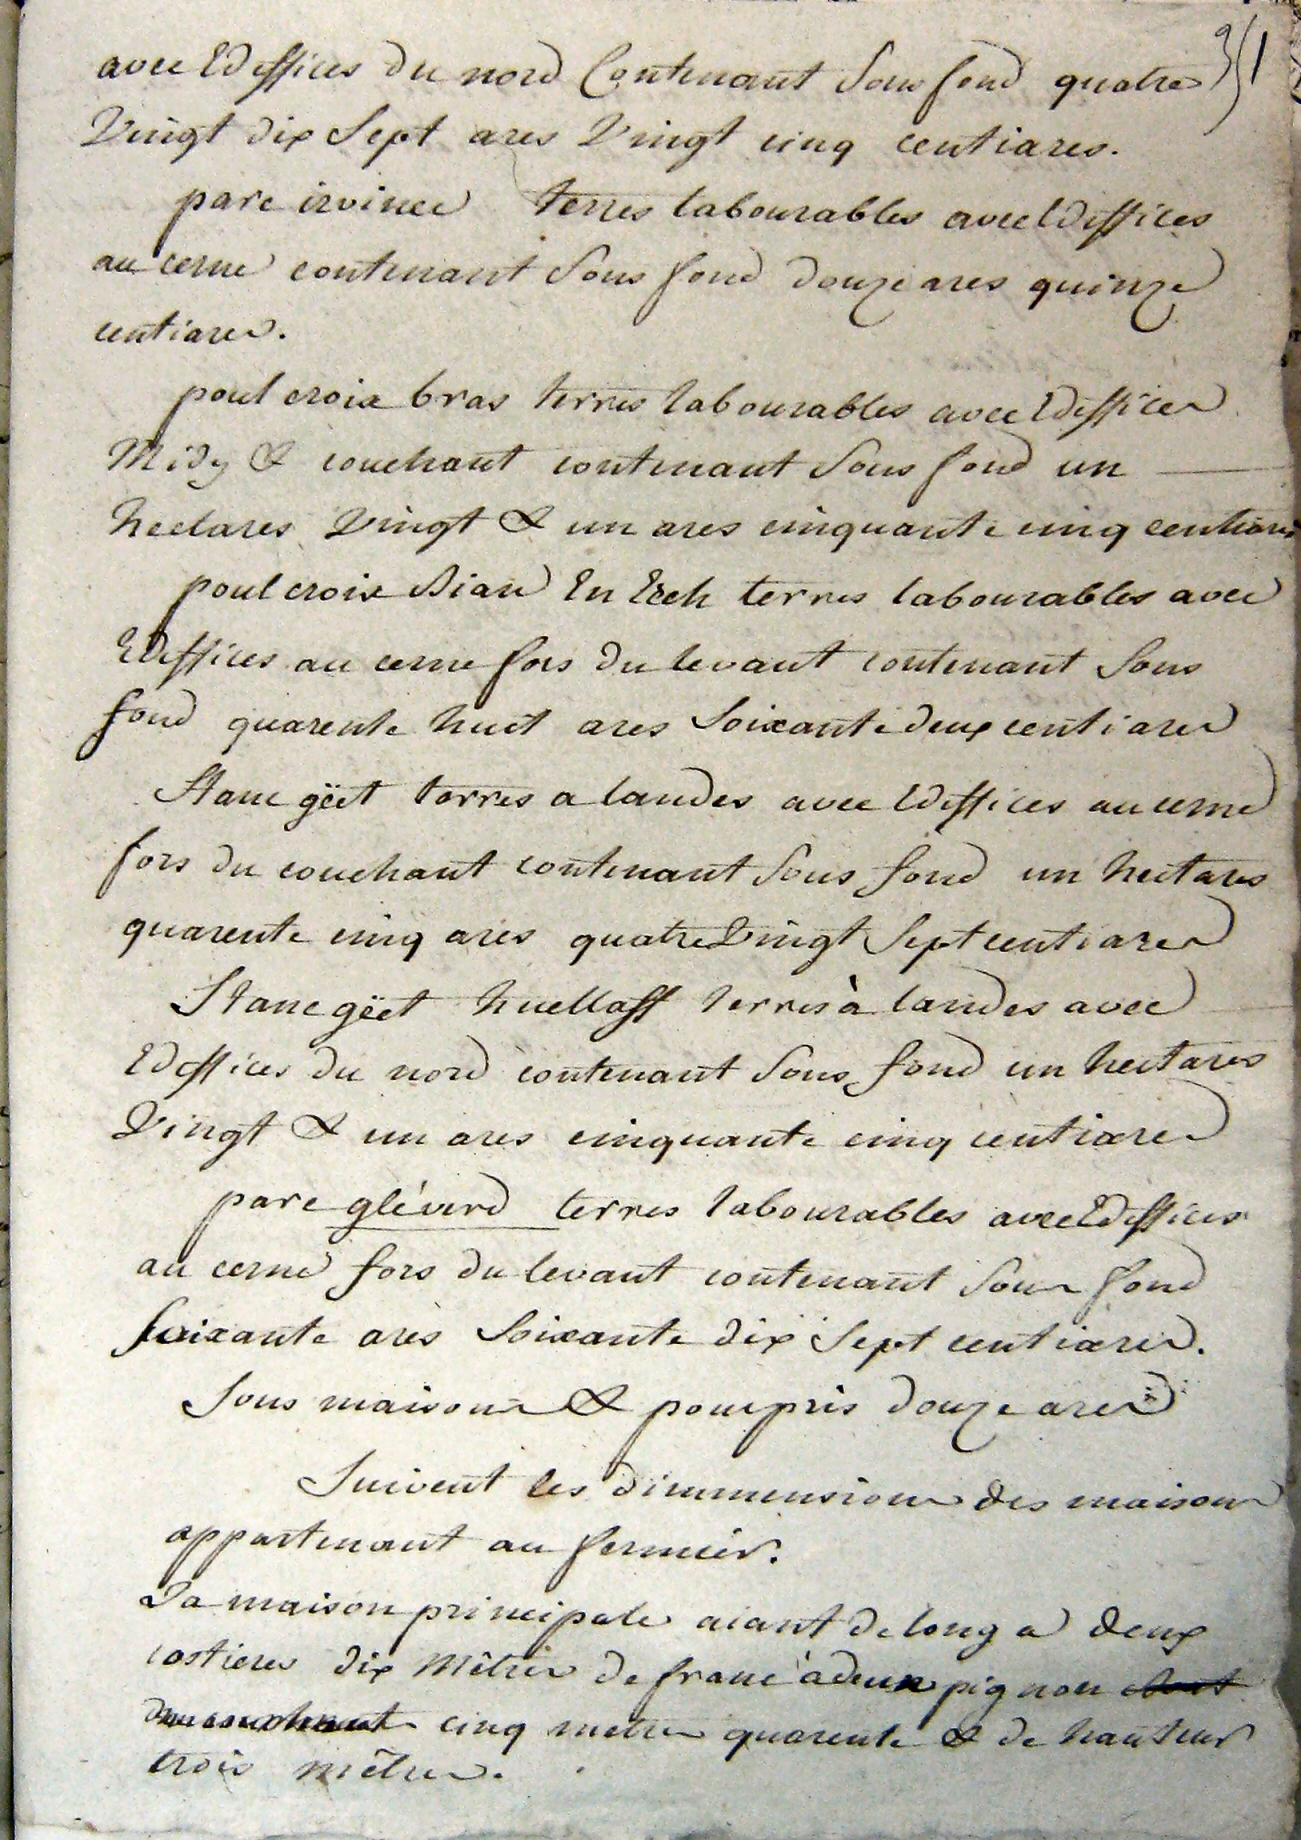 351
avec Ediffices du nord Contenant Sous fond quatre
Vingt dix Sept ares Vingt cinq centiares.
parc irvinec terres labourables avec Ediffices
au cerne contenant Sous fond douze ares quinze
centiares.
poul croix bras terres labourables avec Ediffices
Midy & couchant contenant Sous fond un
hectares Vingt & un ares cinquante cinq centiares
poul croix Bian En Ech terres labourables avec
Ediffices au cerne fors du levant contenant Sous
fond quarente huit ares Soixante deux centiares
Stanc gëet terres a landes avec Ediffices au cerne
fors du couchant contenant Sous fond un hectares
quarente cinq ares quatre Vingt Sept centiares
Stanc gëet huellaff terres à landes avec
Ediffices du nord contenant Sous fond un hectares
Vingt & un ares cinquante cinq centiares
parc glévird terres labourables avec Ediffices
au cerne fors du levant contenant Sous fond
Soixante ares Soixante dix Sept centiares.
Sous maisons & pourpris douze ares
Suivent les dimmensions des maisons
appartenant au fermier.
La maison principale aiant de long a deux
costieres dix Mêtres de franc à deux pignon
cinq metres quarente & de hauteur
trois mêtres.